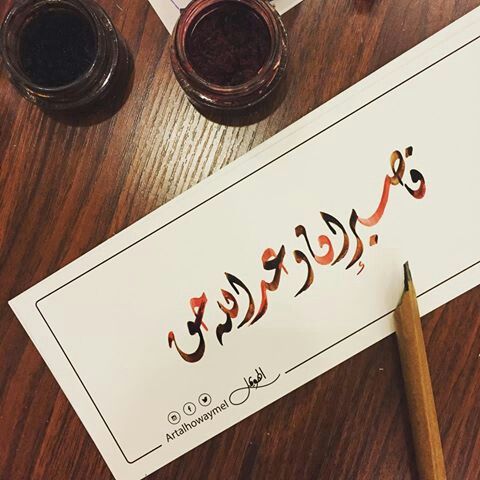 فاصبر إن وعد الله حق
الهويمل
Artalhowaymel